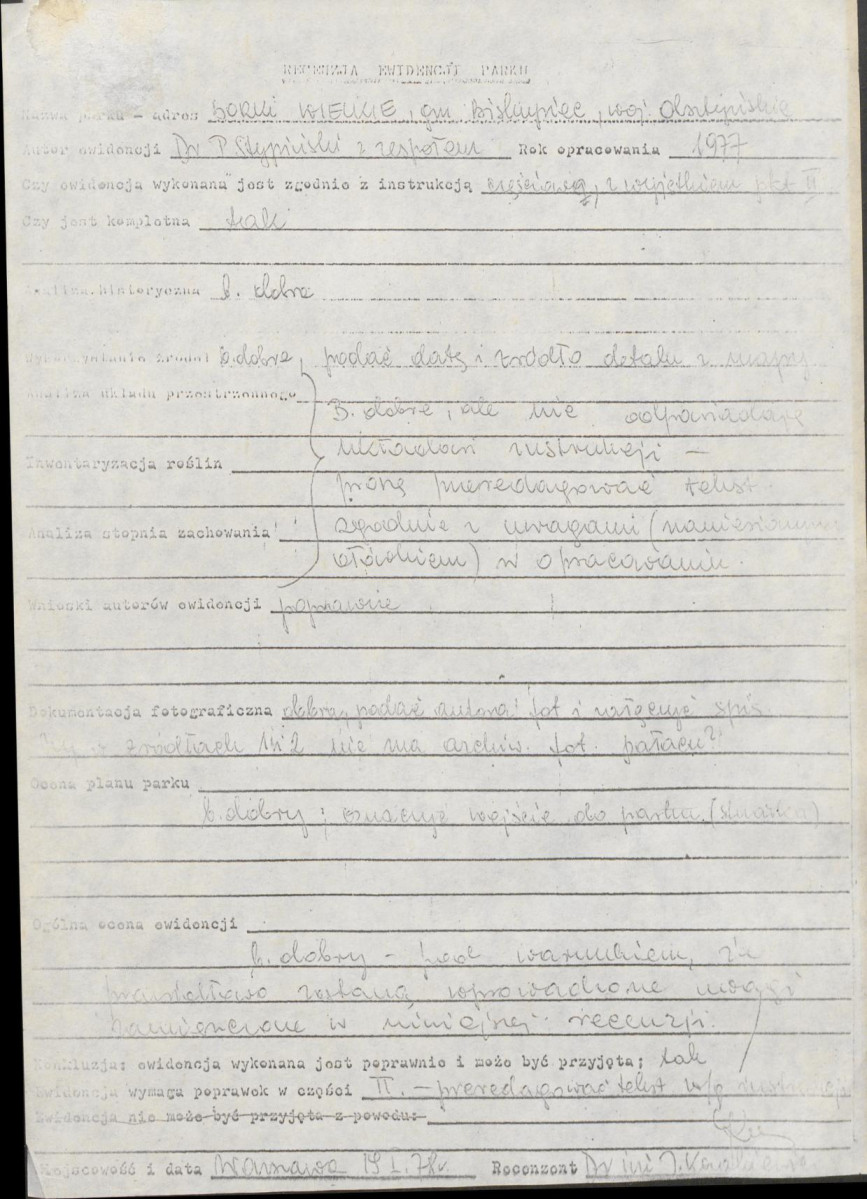 RECENZJA EWIDENCJI PARKU
Nazwa parku - adres BORKI WIELKIE, gm. Biskupiec, woj. Olsztyńskie
Autor ewidencji Dr P. Stypiński z zespołem Rok opracowania 1977
Czy ewidencja wykonana jest zgodnie z instrukcją częściowo, z wyjątkiem pkt II
Czy jest kompletna tak
Analiza historyczna b. dobra
Wykorzystanie źródeł b. dobre, podać datę i źródło detalu z mapy
Analiza układu przestrzennego
B. dobre, ale nie odpowiadają
układowi instrukcji -
Inwentaryzacja roślin
proszę przeredagować tekst
Analiza stopnia zachowania zgodnie z uwagami (naniesionymi
ołówkiem) w opracowaniu.
Wnioski autorów ewidencji poprawne
Dokumentacja fotograficzna dobra, podać autora fot i załączyć spis
Czy w źródłach 1 i 2 nie ma archiw. fot. pałacu?
Ocena planu parku
b. dobry; oznaczyć wejście do parku (strzałka)
Ogólna ocena ewidencji
b. dobry - pod warunkiem, że
prawidłowo zostaną wprowadzone uwagi
zamieszczone w niniejszej recenzji.
Konkluzja: ewidencja wykonana jest poprawnie i może być przyjęta; tak
Ewidencja wymaga poprawek w części II. - przeredagować tekst w/g instrukcji
Ewidencja nie może być przyjęta z powodu:
Miejscowość i data Warszawa 19 I. 78 r. Recenzent Dr inż J.